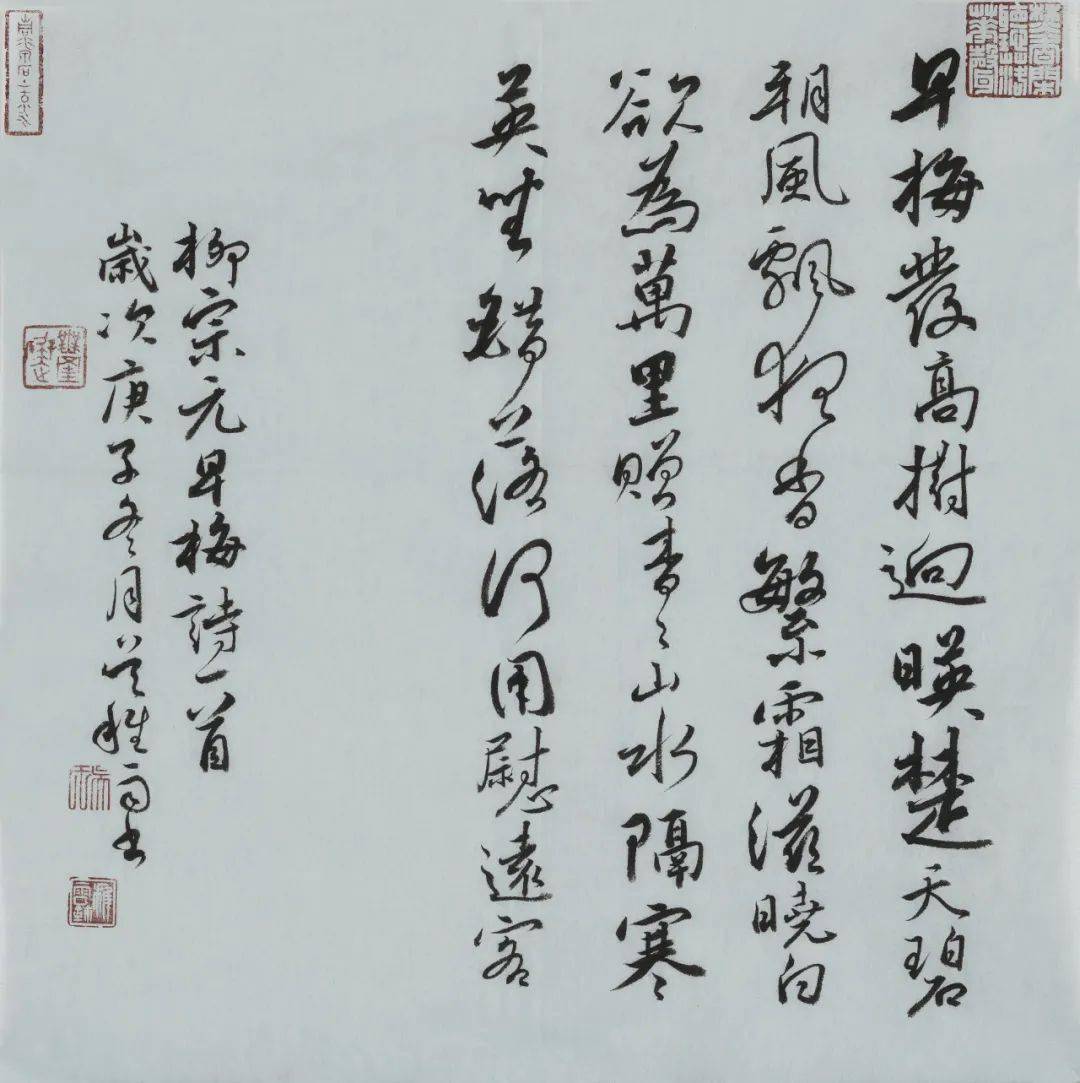 早梅發高樹逈暎楚天碧
朔風飄夜香繁霜滋曉白
欲為萬里贈杳〻山水隔寒
英坐銷落何用慰遠客
柳宗元早梅詩一首
歲次庚子冬月書